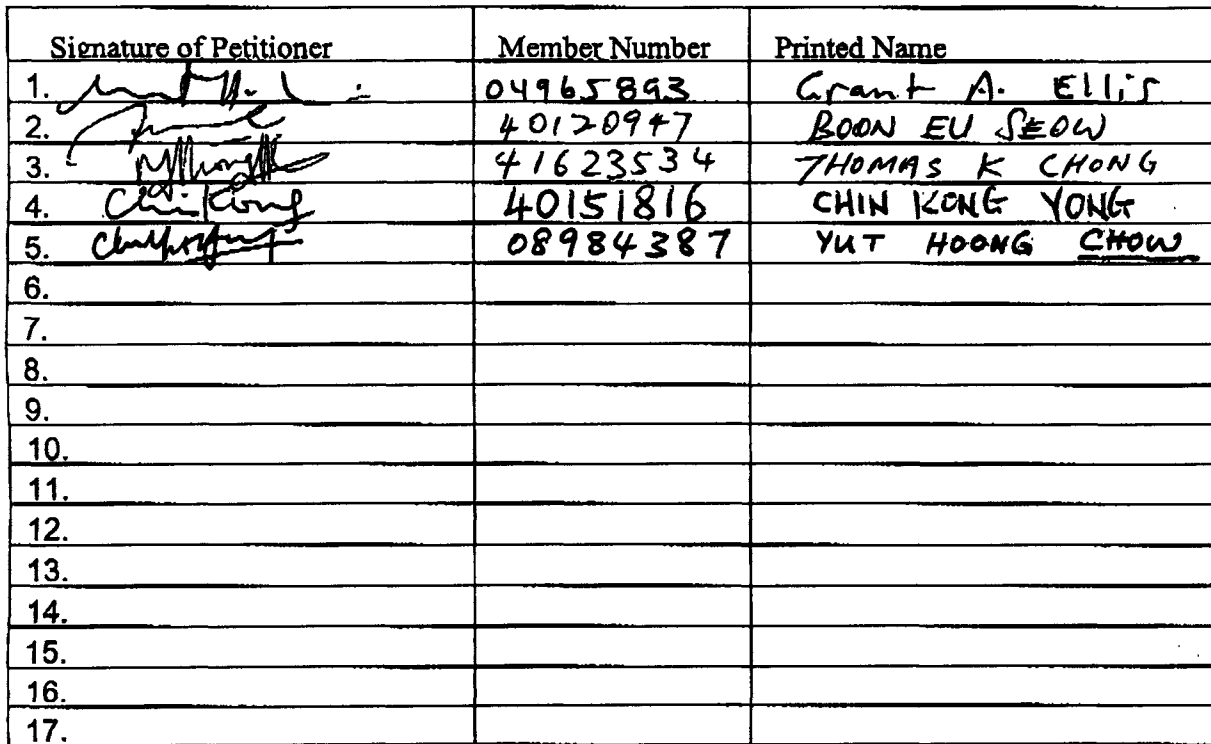 Signature of Petitioner Member Number Printed Name
1. 04965893 Grant A. Ellis
2. 40120947 BOON EU SEOW
3. 41623534 THOMAS K CHONG
4. Chin Kong 40151816 CHIN KONG YONG
5. 08984387 YUT HOONG CHOW
6.
7.
8.
9.
10.
11.
12.
13.
14.
15.
16.
17.